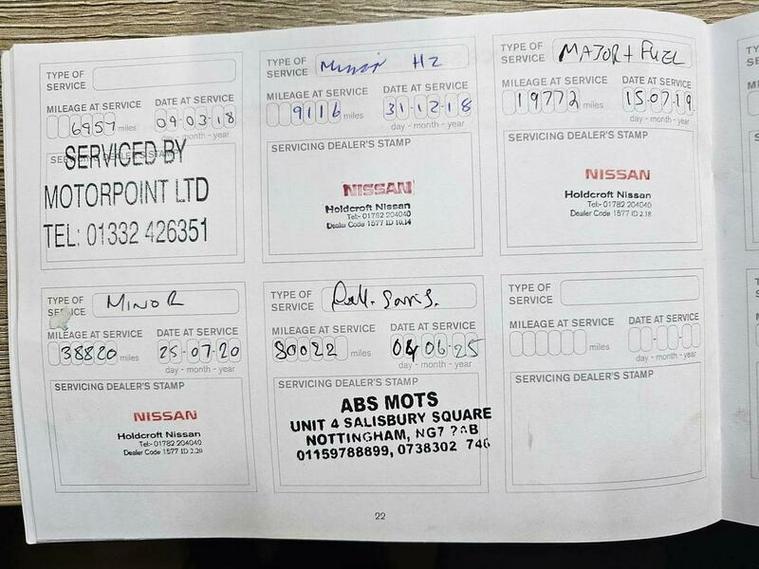 TYPE OF
SERVICE
MILEAGE AT SERVICE DATE AT SERVICE
6957 miles 09-03-18
month - year
SERVICED BY
MOTORPOINT LTD
TEL: 01332 426351
TYPE OF
SERVICE H2
MILEAGE AT SERVICE DATE AT SERVICE
9116 miles 31-12-18
day - month - year
SERVICING DEALER'S STAMP
NISSAN
Holdcroft Nissan
Tel:- 01782 204040
Dealer Code 1577 ID 10.14
TYPE OF
SERVICE MAJOR + FUEL
MILEAGE AT SERVICE DATE AT SERVICE
19772 miles 15-07-19
day - month - year
SERVICING DEALER'S STAMP
NISSAN
Holdcroft Nissan
Tel:- 01782 204040
Dealer Code 1577 ID 2.18
TYPE OF
SERVICE MINOR
MILEAGE AT SERVICE DATE AT SERVICE
38820 miles 25-07-20
day - month - year
SERVICING DEALER'S STAMP
NISSAN
Holdcroft Nissan
Tel:- 01782 204040
Dealer Code 1577 ID 2.20
TYPE OF
SERVICE
MILEAGE AT SERVICE DATE AT SERVICE
80022 miles 04-06-25
day - month - year
SERVICING DEALER'S STAMP
ABS MOTS
UNIT 4 SALISBURY SQUARE
NOTTINGHAM, NG7
01159788899, 0738302
TYPE OF
SERVICE
MILEAGE AT SERVICE DATE AT SERVICE
miles
day - month - year
SERVICING DEALER'S STAMP
22